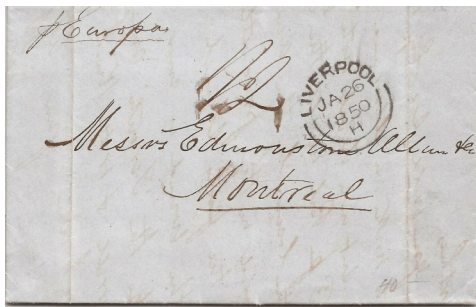 p Europa
1/2
LIVERPOOL
JA 26
1850
H
Messrs Edmonstone Allan & Co
Montreal
40